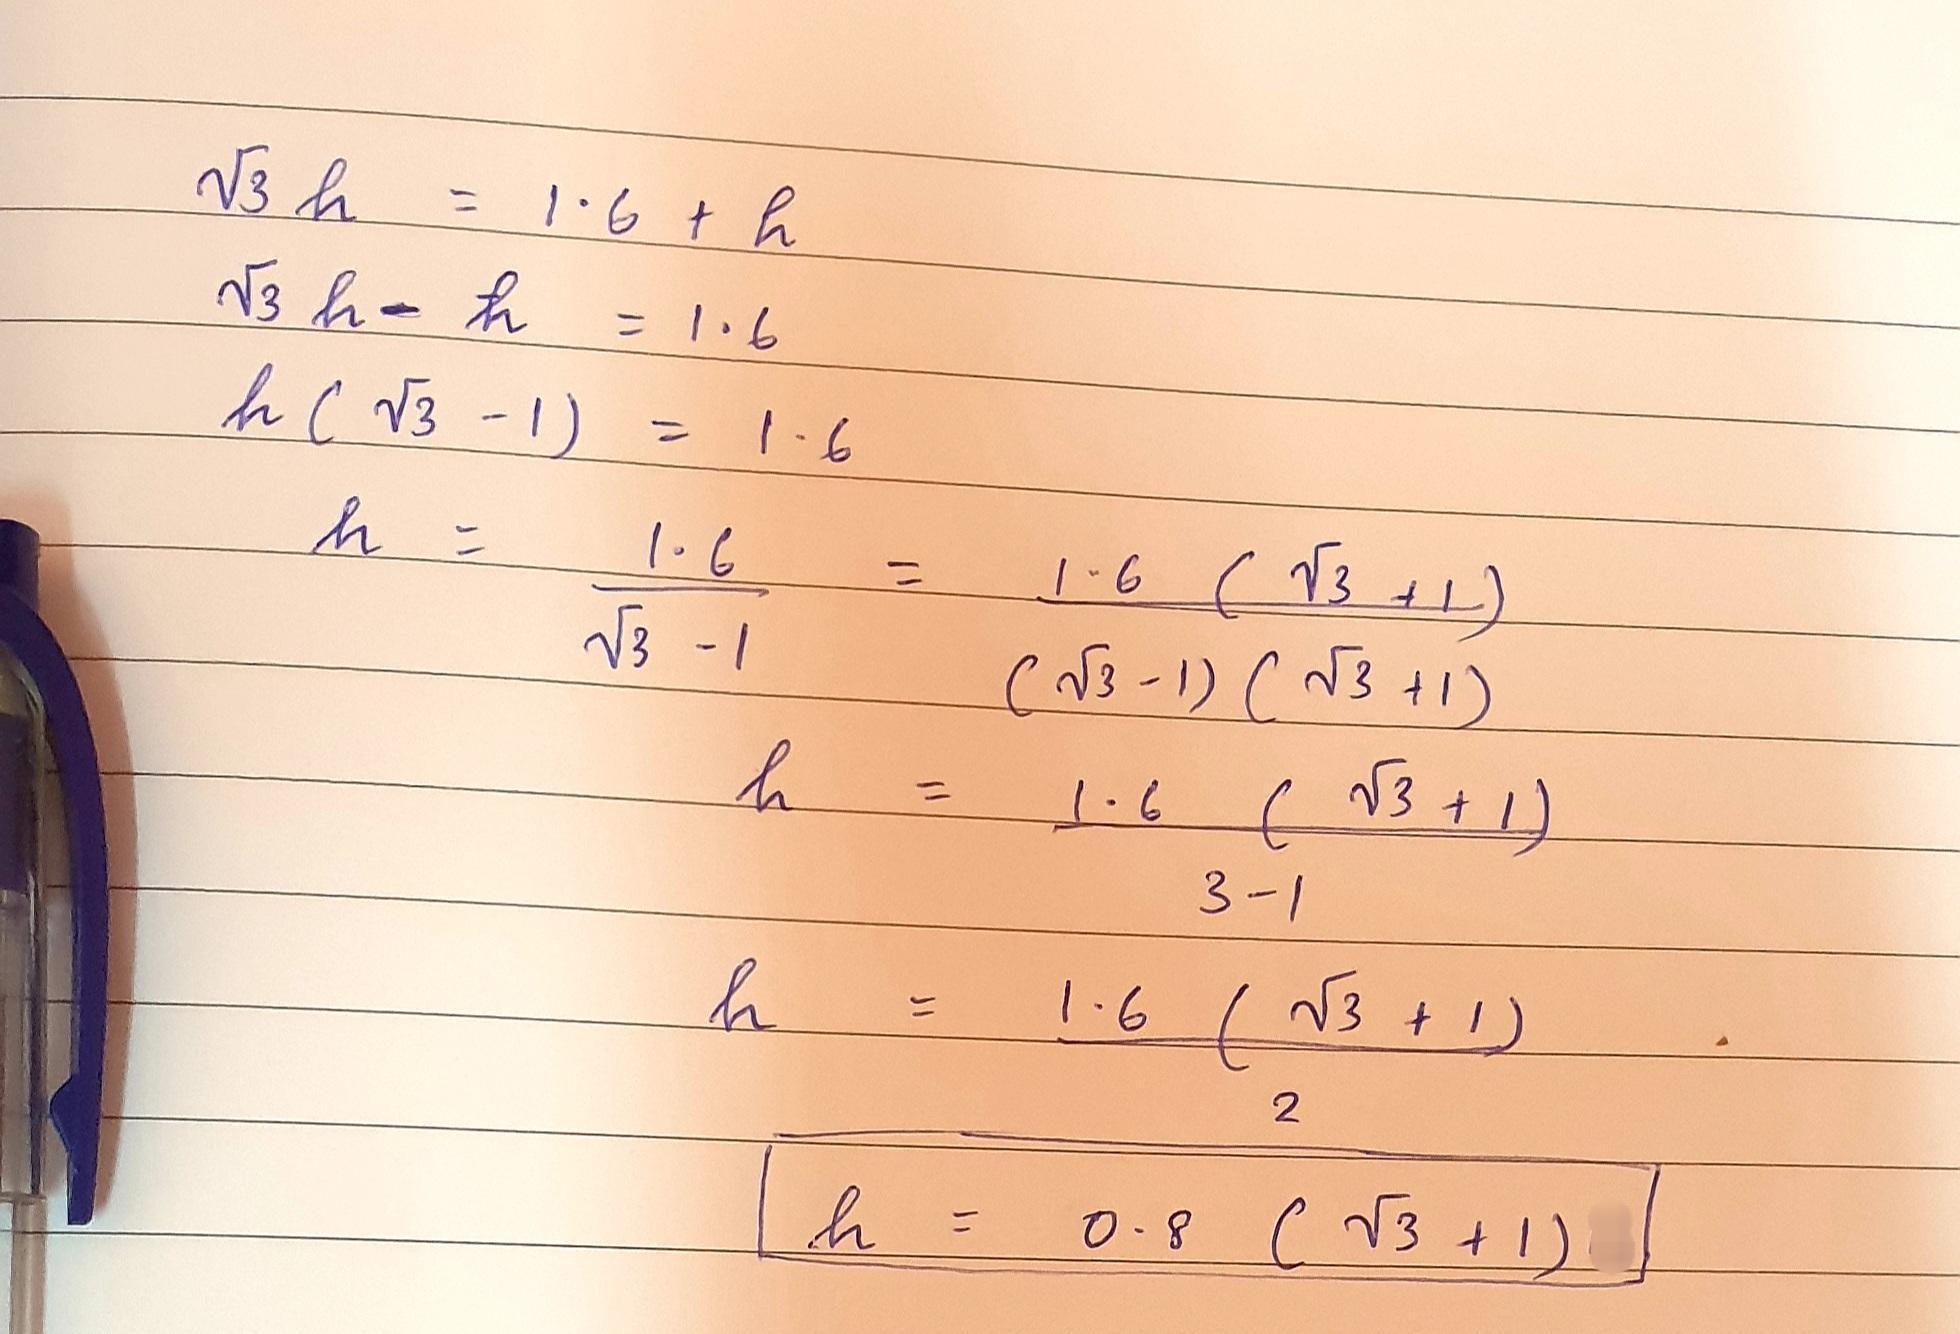 √3 h = 1.6 + h
√3 h - h = 1.6
h ( √3 - 1 ) = 1.6
h = 1.6 / √3 - 1 = 1.6 ( √3 + 1 ) / ( √3 - 1 ) ( √3 + 1 )
h = 1.6 ( √3 + 1 ) / 3 - 1
h = 1.6 ( √3 + 1 ) / 2
h = 0.8 ( √3 + 1 )